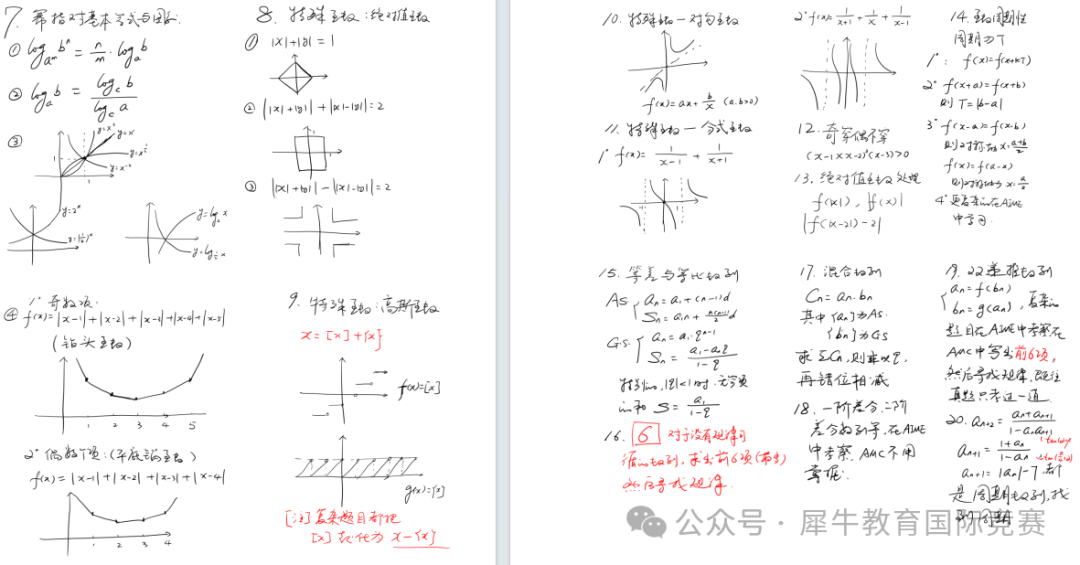 7. 幂指对基本公式与图像
① log_{a^m} b^n = n/m · log_a b
② log_a b = log_c b / log_c a
③
y=x²
y=x
y=x^{1/2}
y=x^{-1}
1
1
y=2^x
y=(1/2)^x
y=log_2 x
y=log_{1/2} x
④ 1° 奇数项:
f(x)=|x-1|+|x-2|+|x-3|+|x-4|+|x-5|
(钻头函数)
1 2 3 4 5
2° 偶数项:(平底锅函数)
f(x)=|x-1|+|x-2|+|x-3|+|x-4|
1 2 3 4
8. 特殊函数:绝对值函数
① |x|+|y|=1
② ||x|+|y||+||x|-|y||=2
③ ||x|+|y||-||x|-|y||=2
9. 特殊函数:高斯函数
x=[x]+{x}
f(x)=[x]
g(x)={x}
[注]复杂题目都把
[x]转化为 x-{x}
10. 特殊函数-对勾函数
f(x)=ax+b/x (a.b>0)
11. 特殊函数-分式函数
1° f(x)= 1/(x-1) + 1/(x+1)
2° f(x)= 1/(x+1) + 1/x + 1/(x-1)
12. 奇穿偶不穿
(x-1)(x-2)²(x-3)>0
13. 绝对值函数处理
f(|x|), |f(x)|
|f(x-2)-2|
14. 函数周期性
周期为T
1°: f(x)=f(x+kT)
2° f(x+a)=f(x+b)
则 T=|b-a|
3° f(x-a)=f(x-b)
f(x)=f(a-x)
4° 更复杂的在AIME
中学习
15. 等差与等比数列
AS. a_n=a_1+(n-1)d
S_n=a_1n+n(n-1)/2 d
GS. a_n=a_1·q^{n-1}
S_n=(a_1-a_nq)/(1-q)
特别的, |q|<1时, 无穷项
的和 S=a_1/(1-q)
16. 6 对于没有规律可
循的数列, 求出前6项
然后寻找规律.
17. 混合数列
C_n=a_n·b_n
其中{a_n}为AS.
{b_n}为GS
求ΣC_n, 则乘以q,
再错位相减
18. 一阶差分,二阶
差分数列等, 在AIME
中考察, AMC不用
掌握.
19. 双递推数列
a_n=f(b_n)
b_n=g(a_n), 复杂的
题目在AIME中考察, 在
AMC中写出前6项,
然后寻找规律, 历往
真题只考过一道.
20. a_{n+2}=(a_n+a_{n+1})/(1-a_na_{n+1})
a_{n+1}=(1+a_n)/(1-a_n)
a_{n+1}=|a_n|-7, 都
是周期数列, 找
到周期
公众号 · 犀牛教育国际竞赛